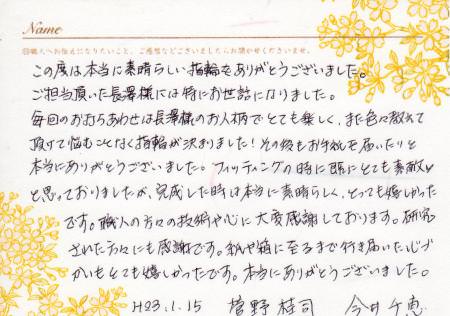 Name
◎職人へお伝えになりたいこと、ご感想などございましたらお聞かせくださいませ。
この度は本当に素晴らしい指輪をありがとうございました。
ご担当頂いた長澤様には特にお世話になりました。
毎回のおうちあわせは長澤様のお人柄でとても楽しく、また色々教えて
頂けて悩むことなく指輪が決まりました！その後もお手紙を届いたりと
本当にありがとうございました。フィッティングの時に既にとても素敵♡
と思っておりましたが、完成した時は本当に素晴らしく、とっても嬉しかった
です。職人の方々の技術や心に大変感謝しております。研究
された方々にも感謝です。袋や箱に至るまで行き届いた心づ
かいもとても嬉しかったです。本当にありがとうございました。
H23.1.15 菅野桂司 今井千恵